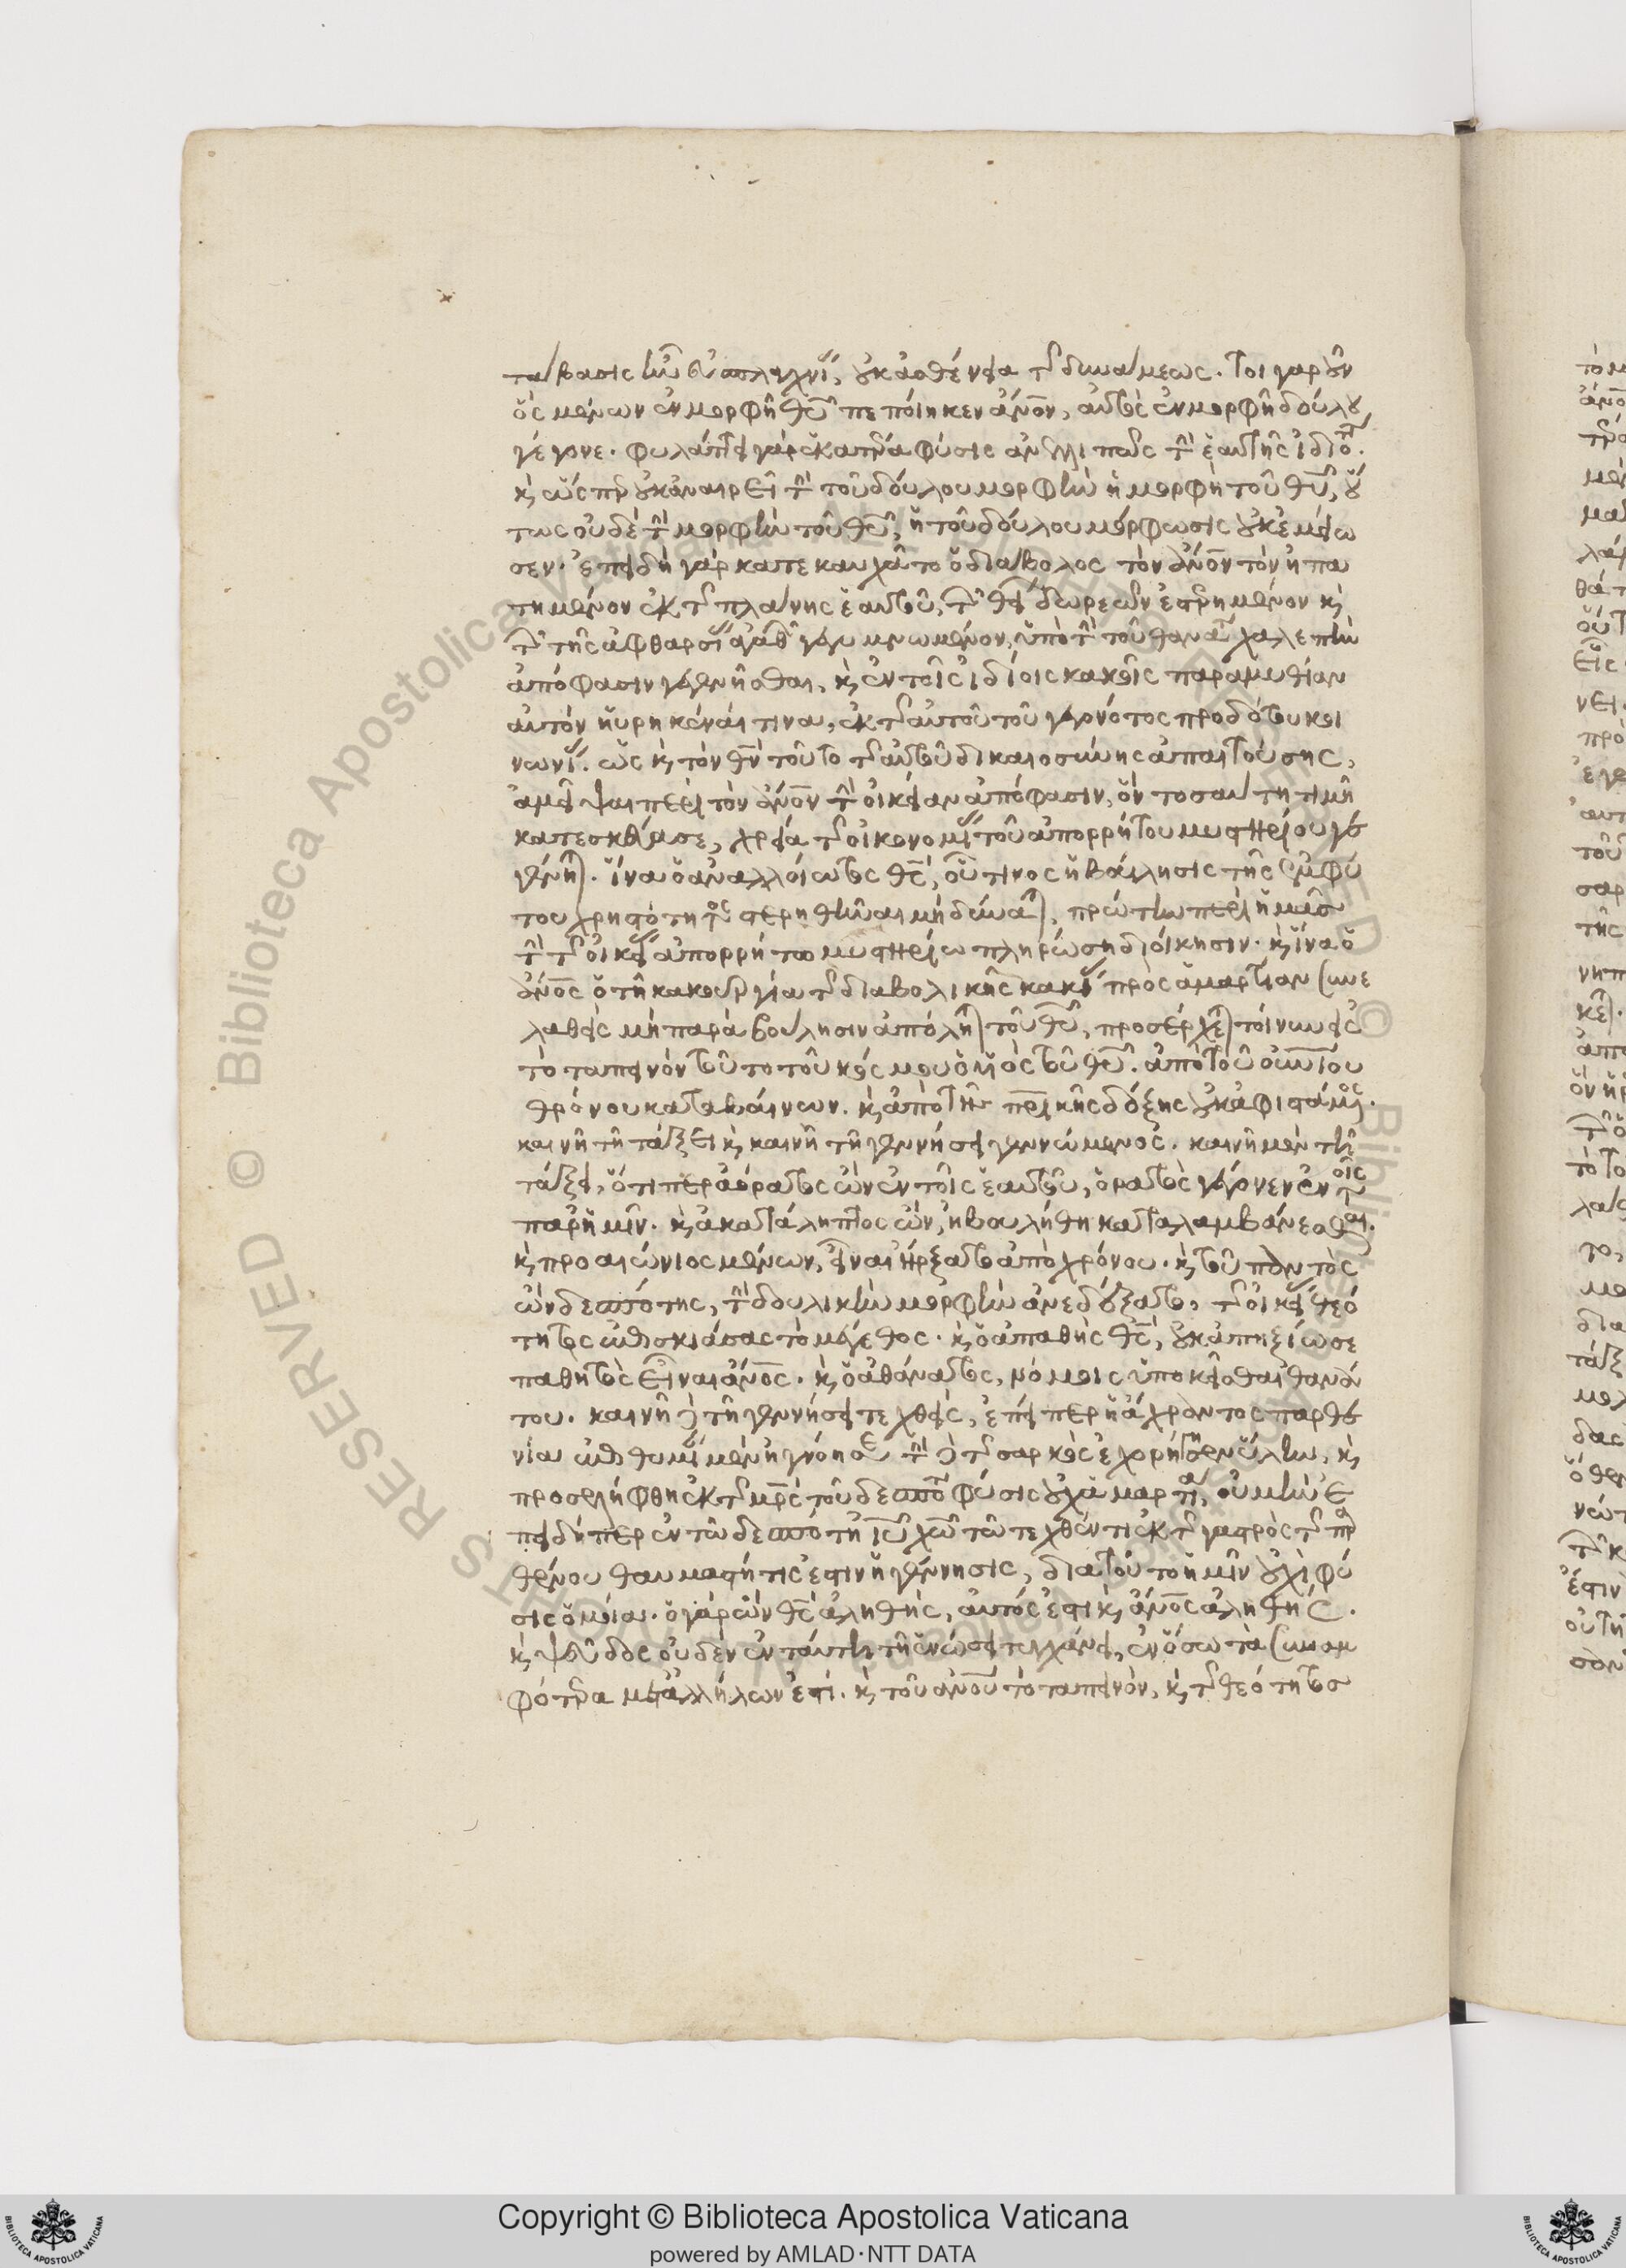 τάβασις ἦν εὐσπλαγχνί, οὐκ ἀσθένεια τ δυνάμεως. τοιγαροῦν
ὃς μένων ἐν μορφῆ θυ πεποίηκεν ἄνον, αὐτὸς ἐν μορφῆ δούλου
γέγονε. φυλάττει γὰρ ἑκατέρα φύσις ἀνελλιπῶς τὴν ἑαυτῆς ἰδιότ.
κ ὥσπερ οὐκ ἀναιρεῖ τὴν τοῦ δούλου μορφὴν ἡ μορφὴ τοῦ θυ, οὕ
τως οὐδὲ τὴν μορφὴν τοῦ θυ, ἡ τοῦ δούλου μόρφωσις οὐκ ἐμείω
σεν. ἐπειδὴ γὰρ κατεκαυχᾶτο ὁ διάβολος τὸν ἄνον τὸν ἠπα
τημένον ἐκ τ πλάνης ἑαυτοῦ, τῶν θείων δωρεῶν ἐστερημένον κ
τ τῆς ἀφθαρσί ἀγαθ γεγυμνωμένον, ὑπὸ τὴν τοῦ θανάτ χαλεπὴν
ἀπόφασιν γεγενῆσθαι, κ ἐν τοῖς ἰδίοις κακοῖς παραμυθίαν
αὐτὸν ηὑρηκέναι τινα, ἐκ τ αὐτοῦ τοῦ γεγονότος προδότου κοι
νωνί. ὡς κ τὸν θν τοῦτο τ αὐτοῦ δικαιοσύνης ἀπαιτούσης,
ἀμεῖψαι περὶ τὸν ἄνον τὴν οἰκείαν ἀπόφασιν, ὃν τοσαύτη τιμῆ
κατεσκεύασε, χρεία τ οἰκονομί τοῦ ἀπορρήτου μυστηρίου γε
γένη. ἵνα ὁ ἀναλλοίωτος θς, οὗτινος ἡ βούλησις τῆς ἐμφύ
του χρηστότητος στερηθῆναι μὴ δύνα, πρώτην περὶ ἡμᾶς
τὴν τ οἰκεί ἀπορρήτω μυστηρίω πληρώση διοίκησιν. κ ἵνα ὁ
ἄνος ὁ τῆ κακουργία τ διαβολικῆς κακί πρὸς ἁμαρτίαν συνε
λαθεὶς μὴ παρὰ βούλησιν ἀπόλη τοῦ θυ, προσέρχε τοίνυν εἰς
τὸ ταπεινὸν τοῦτο τοῦ κόσμου ὁ υἱὸς τοῦ θυ. ἀπὸ τοῦ οὐνίου
θρόνου καταβαίνων. κ ἀπὸ τῆς πρικῆς δόξης οὐκ ἀφιστάμος.
καινῆ τῆ τάξει κ καινῆ τῆ γεννήσει γεννώμενος. καινῆ μὲν τῆ
τάξει, ὅτιπερ ἀόρατος ὢν ἐν τοῖς ἑαυτοῦ, ὁρατὸς γέγονεν ἐν τοῖς
παρ' ἡμῖν. κ ἀκατάληπτος ὤν, ἠβουλήθη καταλαμβάνεσθαι.
κ προαιώνιος μένων, εἶναι ἤρξατο ἀπὸ χρόνου. κ τοῦ παντὸς
ὢν δεσπότης, τὴν δουλικὴν μορφὴν ἀνεδύξατο, τ οἰκεί θεό
τητος ἐπισκιάσας τὸ μέγεθος. κ ὁ ἀπαθὴς θς, οὐκ ἀπηξίωσε
παθητὸς εἶναι ἄνος. κ ὁ ἀθάνατος, νόμοις ὑποκεῖσθαι θανά
του. καινῆ δὲ τῆ γεννήσει τεχθείς, ἐπείπερ ἡ ἄχραντος παρθε
νία ἐπιθυμί μὲν ἠγνόησε τὴν δὲ τ σαρκὸς ἐχορήγησεν ὕλην, κ
προσελήφθη ἐκ τ μρς τοῦ δεσπό φύσις οὐχ ἁμαρτία, οὐ μὴν ἐ
πειδήπερ ἐν τῶ δεσπότη ιυ χω τῶ τεχθέντι ἐκ τ γαστρὸς τ παρ
θένου θαυμαστή τίς ἐστιν ἡ γέννησις, διὰ τοῦτο ἡμῖν οὐχὶ φύ
σις ὁμοία. ὁ γὰρ ὢν θς ἀληθής, αὐτός ἐστι κ ἄνος ἀληθής.
κ ψεῦδος οὐδὲν ἐν ταύτη τῆ ἑνώσει τυγχάνει, ἐν ὅσω τὰ συναμ
φότερα μετ' ἀλλήλων ἐστί. κ τοῦ ἄνου τὸ ταπεινόν, κ τ θεότητος